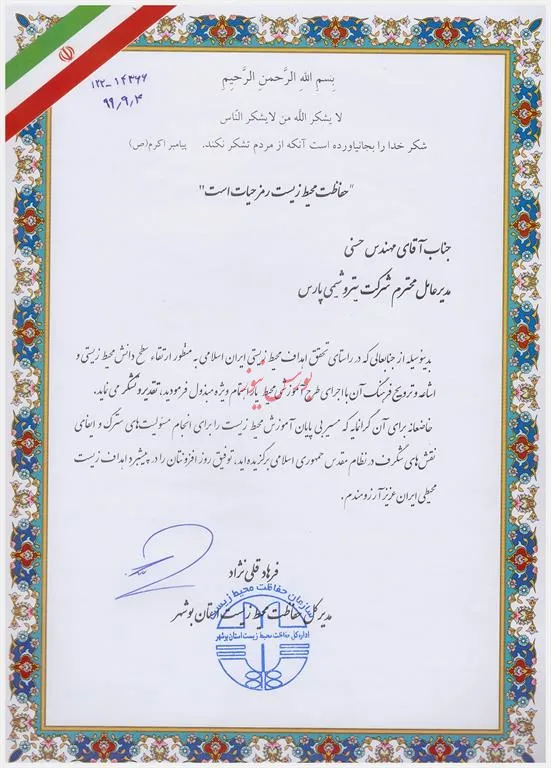 بِسمِ اللهِ الرَّحمنِ الرَّحیمِ
۱۲۲-۱۴۳۶۶
۹۹٫۹٫۴
لا یشکر اللَّه من لایشکر النّاس
شکر خدا را بجانیاورده است آنکه از مردم تشکر نکند. پیامبر اکرم(ص)
"حفاظت محیط زیست رمز حیات است"
جناب آقای مهندس حسنی
مدیرعامل محترم شرکت پتروشیمی پارس
بدینوسیله از جنابعالی که در راستای تحقق اهداف محیط زیستی ایران اسلامی به منظور ارتقاء سطح دانش محیط زیستی و
اشاعه و ترویج فرهنگ آن با اجرای طرح آموزشی محیط یار اهتمام ویژه مبذول فرمودید، تقدیر و تشکر می نماید.
خاضعانه برای آن گرانمایه که مسیر بی پایان آموزش محیط زیست را برای انجام مسئولیت‌های سترگ و ایفای
نقش‌های شگرف در نظام مقدس جمهوری اسلامی برگزیده اید، توفیق روز افزونتان را در پیشبرد اهداف زیست
محیطی ایران عزیز آرزومندم.
بورس نیوز
فرهاد قلی نژاد
مدیرکل حفاظت محیط زیست استان بوشهر
سازمان حفاظت محیط زیست
اداره کل حفاظت محیط زیست استان بوشهر